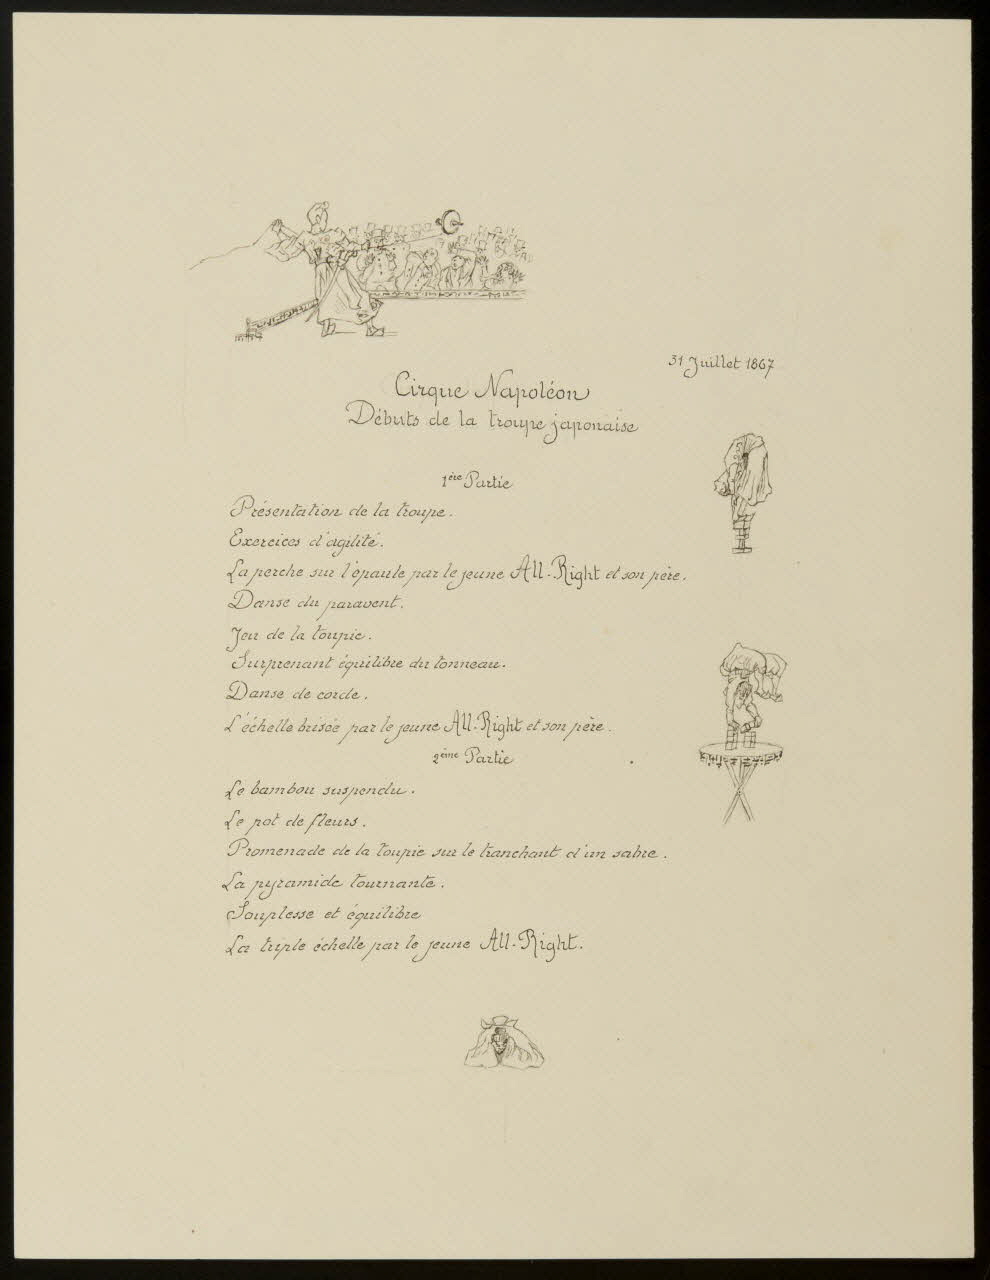 31 Juillet 1867
Cirque Napoléon
Débuts de la troupe japonaise
1ère Partie
Présentation de la troupe.
Exercices d'agilité.
La perche sur l'épaule par le jeune All-Right et son père.
Danse du paravent.
Jeu de la toupie.
Surprenant équilibre du tonneau.
Danse de corde.
L'échelle brisée par le jeune All-Right et son père.
2ème Partie
Le bambou suspendu.
Le pot de fleurs.
Promenade de la toupie sur le tranchant d'un sabre.
La pyramide tournante.
Souplesse et équilibre
La triple échelle par le jeune All-Right.